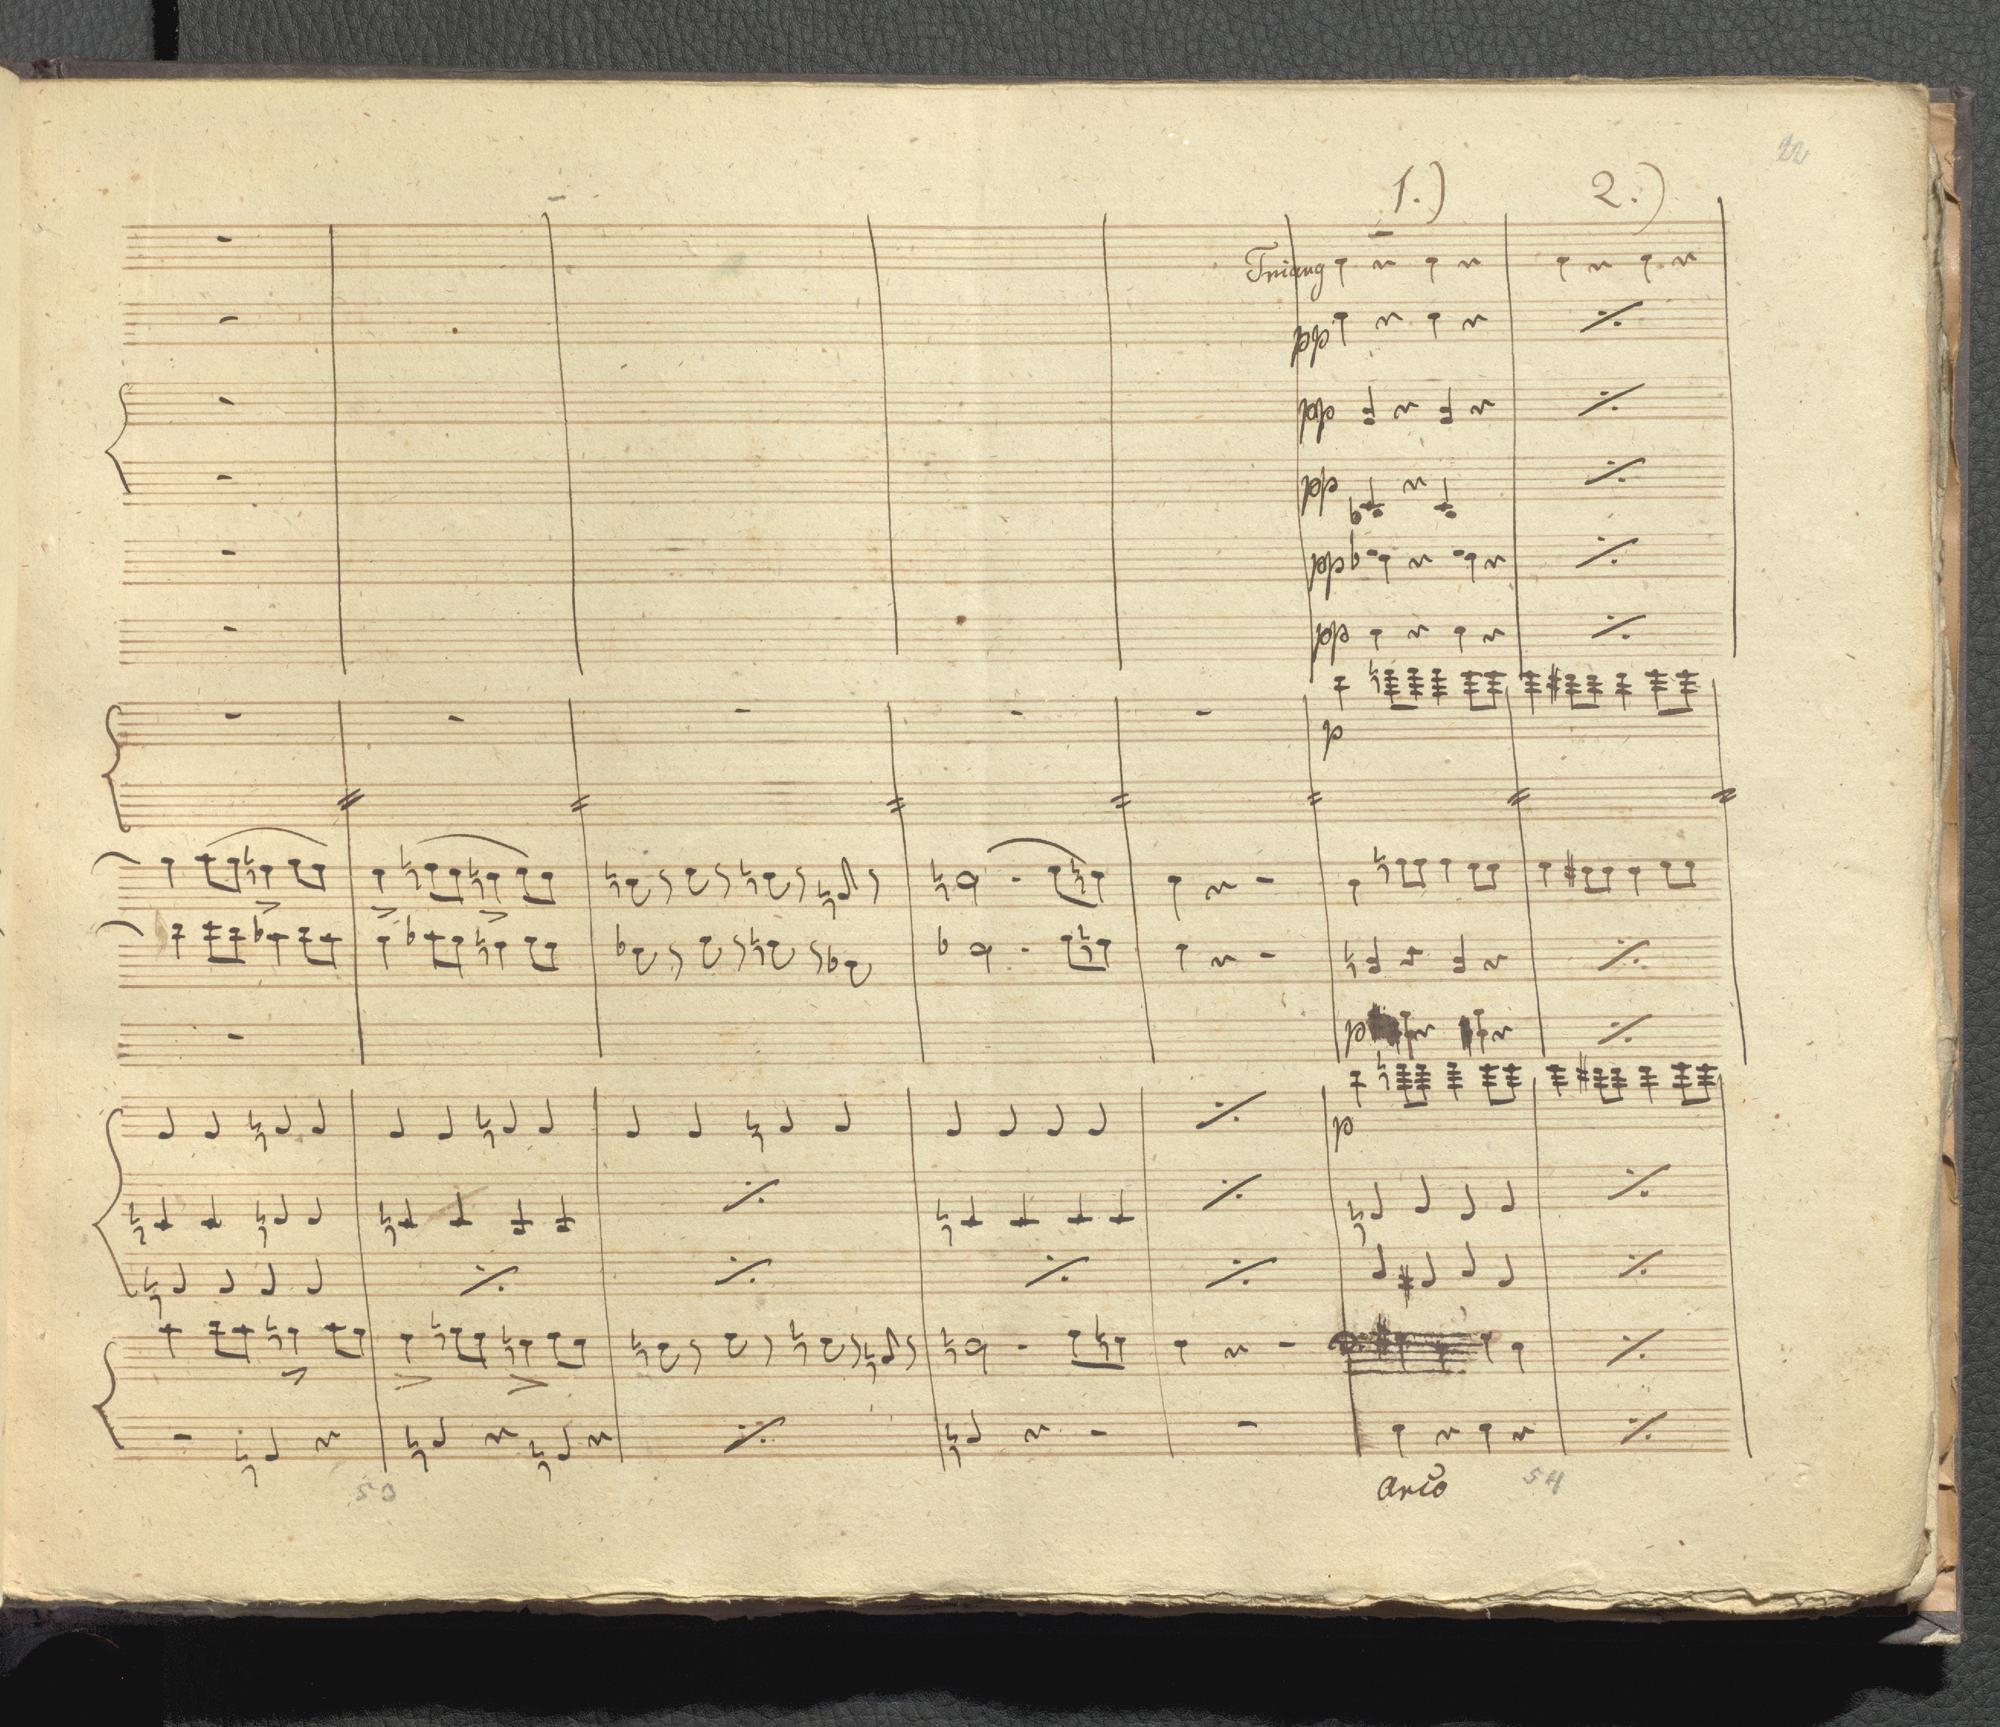 22
1.) 2.)
Triang
pp
pp
pp
pp
pp
p
p
p
arco
53 54